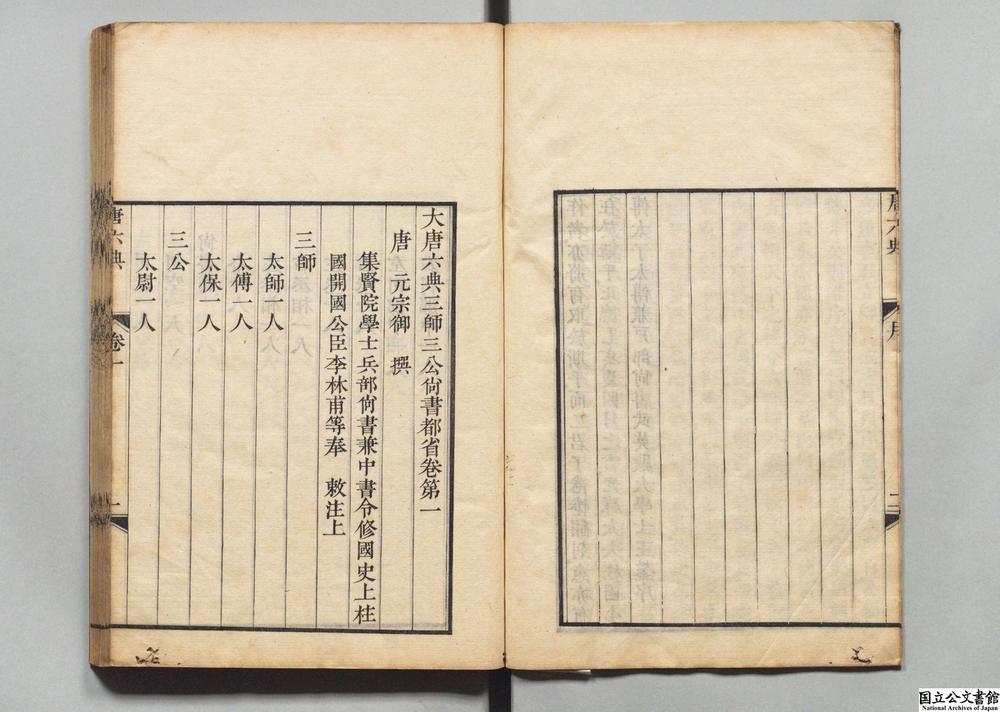 大唐六典三師三公尙書都省卷第一
唐 元宗御 撰
集賢院學士兵部尙書兼中書令修國史上柱
國開國公臣李林甫等奉 敕注上
三師
太師一人
太傅一人
太保一人
三公
太尉一人
唐六典 卷一 一
国立公文書館
National Archives of Japan